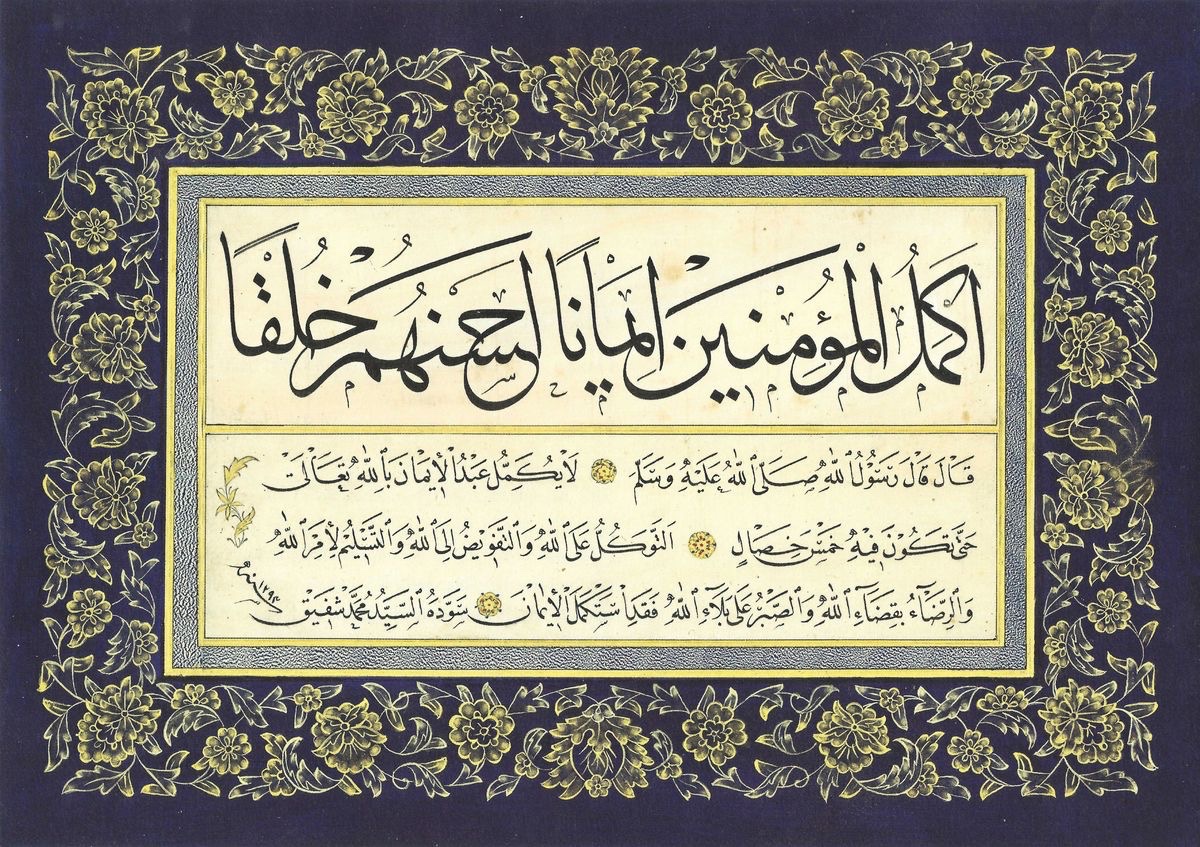 اكمل المؤمنين ايمانا احسنهم خلقا
قال قال رسول الله صلى الله عليه وسلم لا يكمل عبد الإيمان بالله تعالى
حتى تكون فيه خمس خصال التوكل على الله والتفويض إلى الله والتسليم لأمر الله
والرضاء بقضاء الله والصبر على بلاء الله فقد استكمل الإيمان سوده السيد محمد شفيق
سنه ١٢٩٣